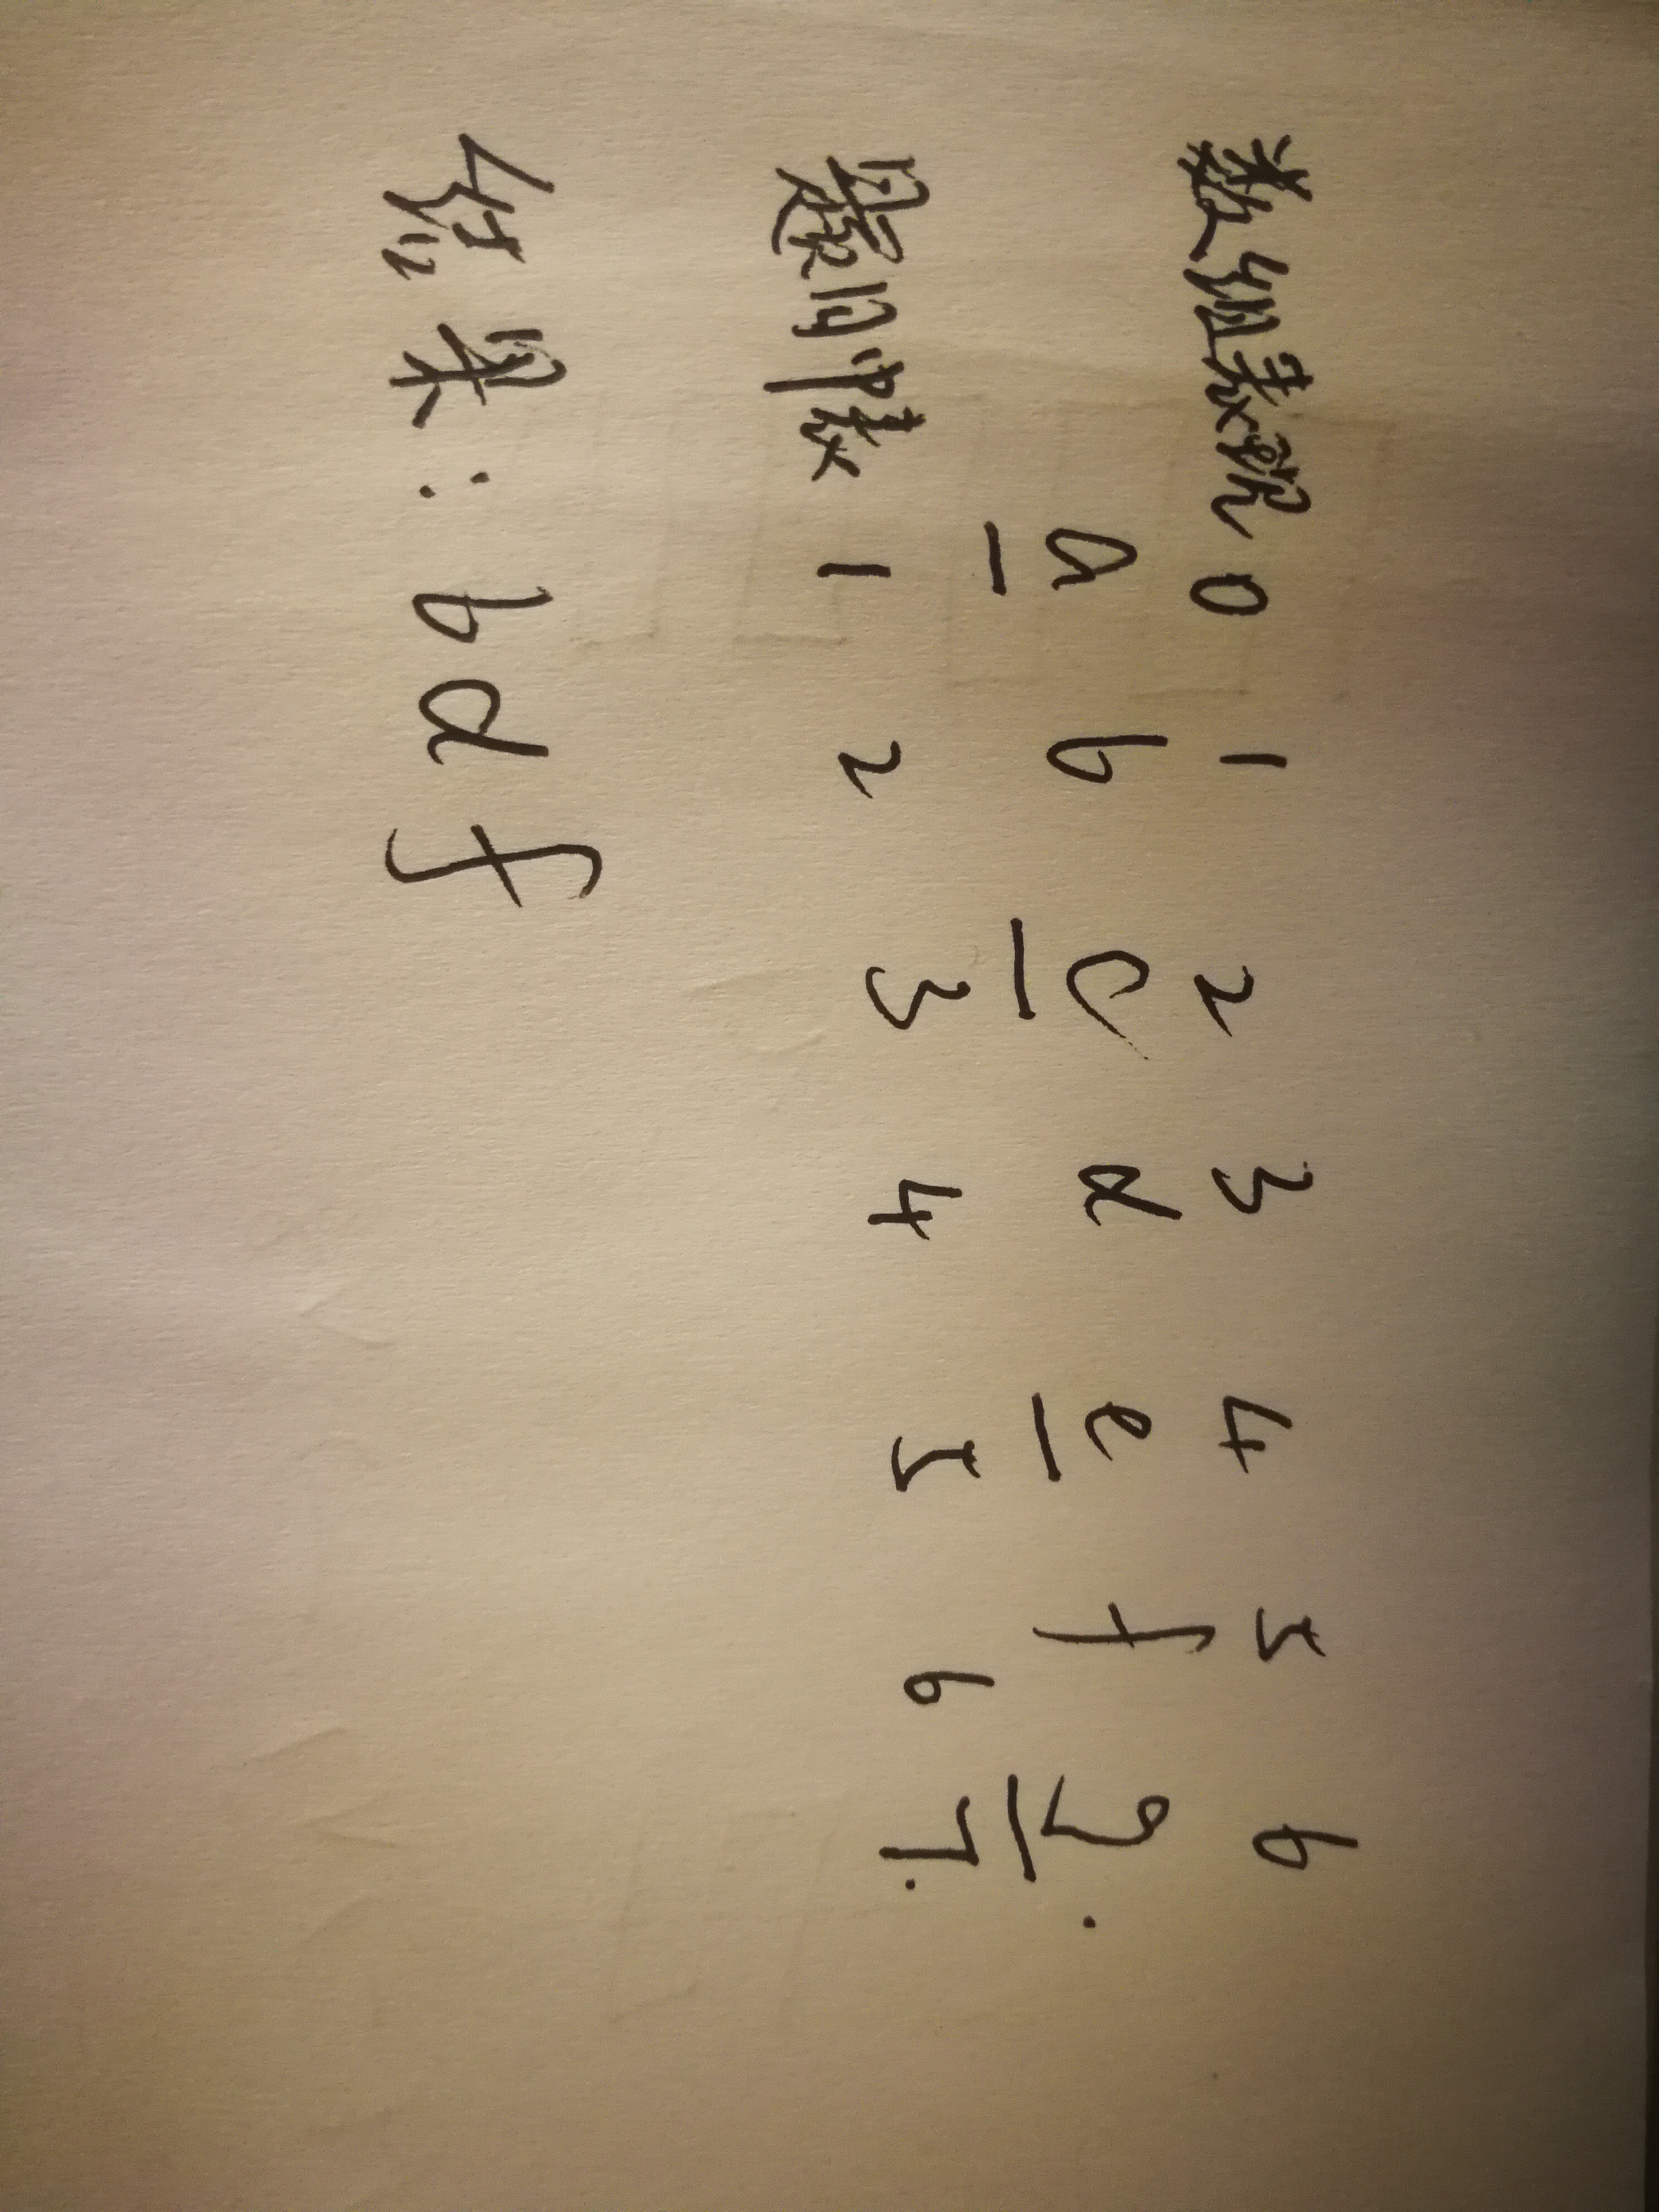 数组表现 0 1 2 3 4 5 6
a b c d e f g.
题目中表 1 2 3 4 5 6 7.
结果: b d f